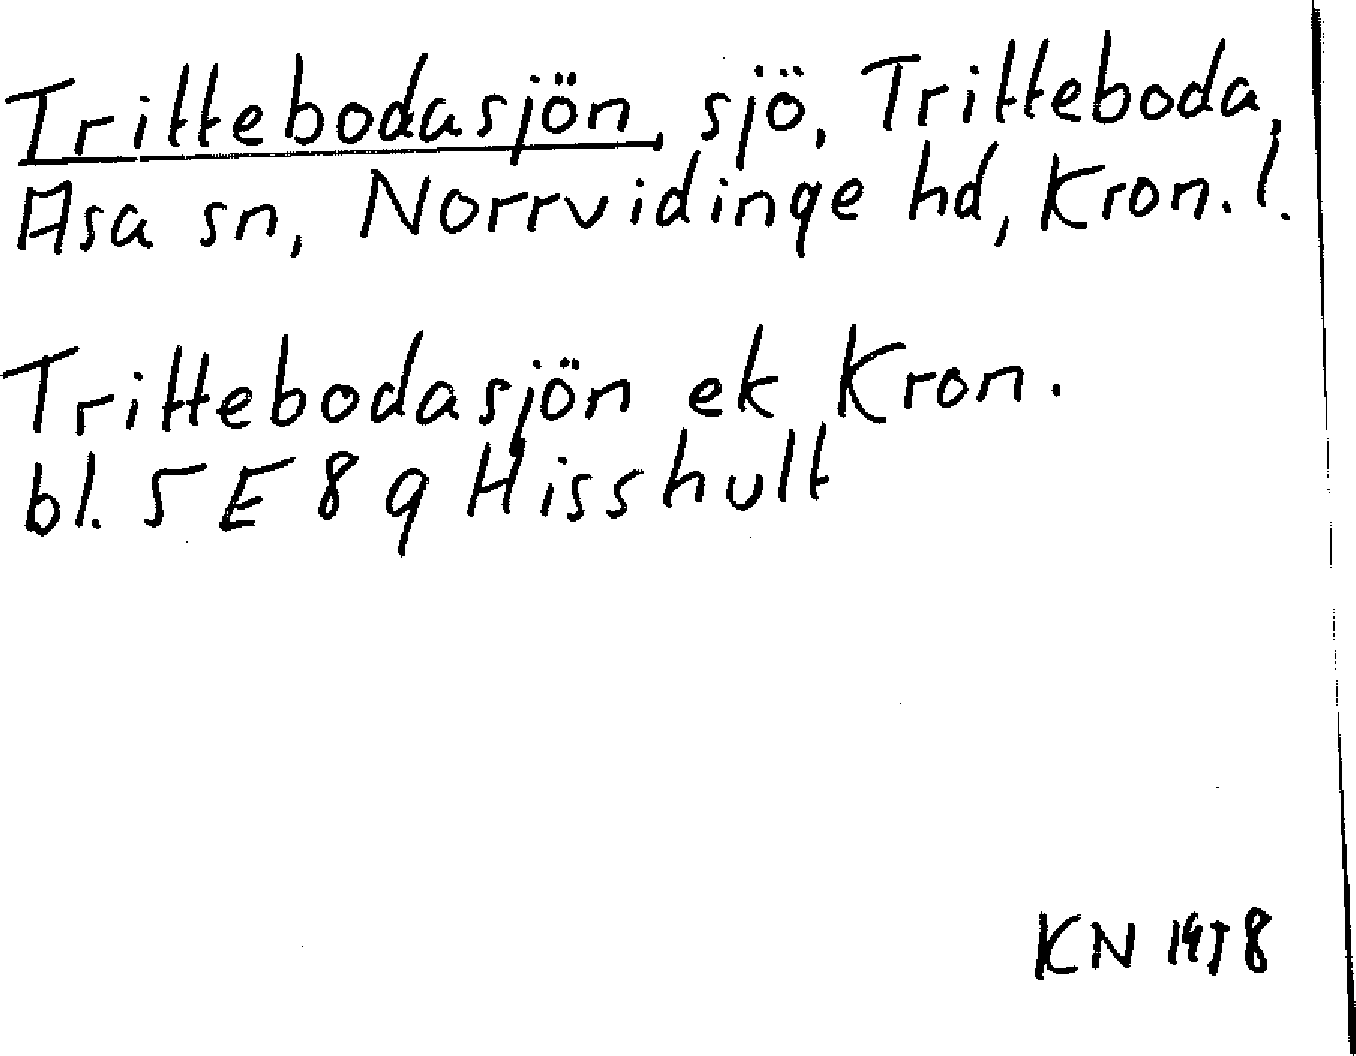 Trittebodasjön, sjö, Tritteboda,
Asa sn, Norrvidinge hd, Kron. l.
Trittebodasjön ek Kron.
bl. 5 E 8 g Hisshult
KN 1978